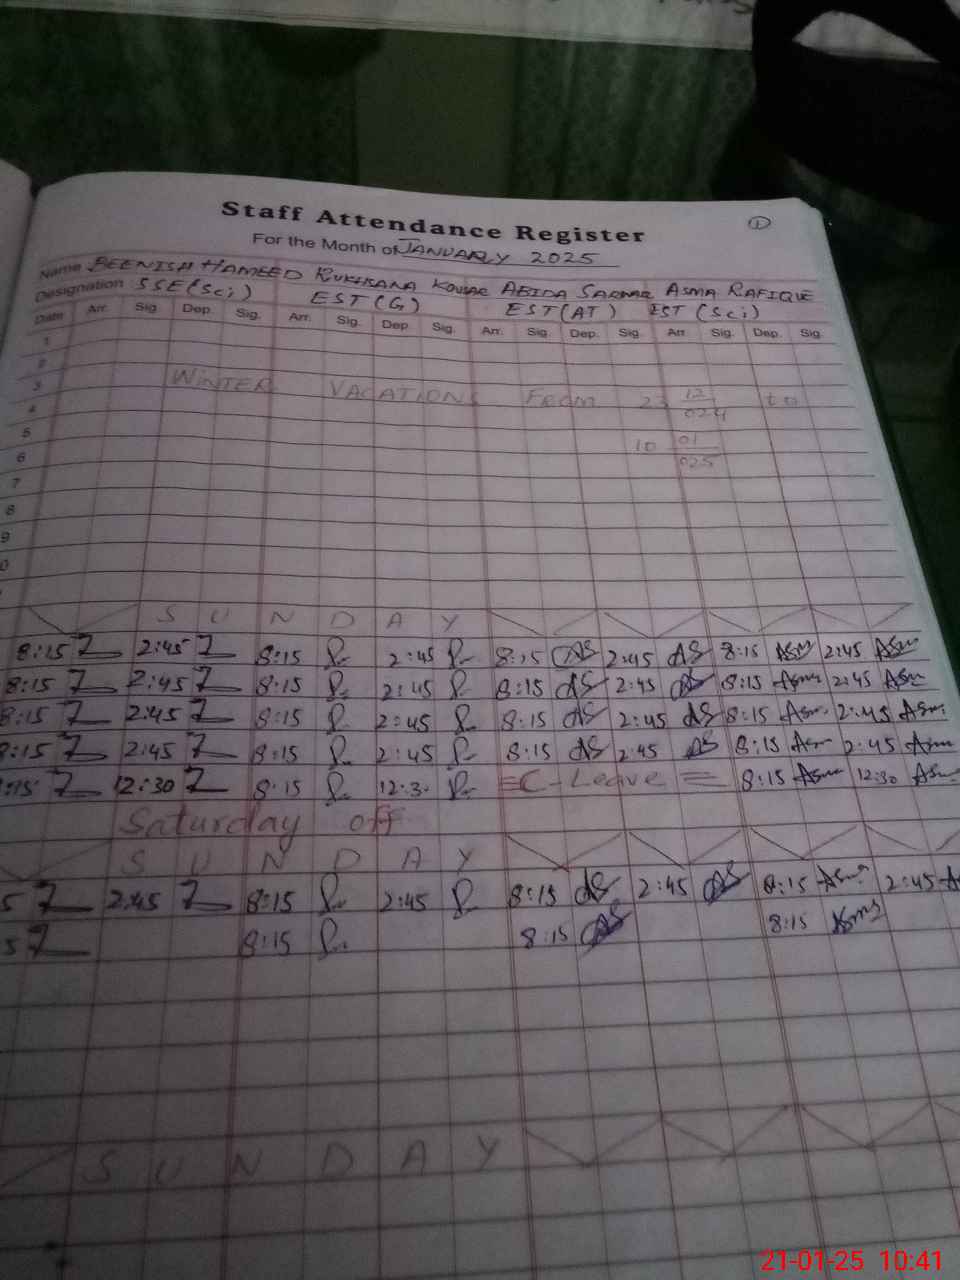 Staff Attendance Register
1
For the Month of JANUARY 2025
Name BEENISH HAMEED RUKHSANA KOUSAR ABIDA SARWAR ASMA RAFIQUE
Designation SSE(Sci) EST (G) EST(AT) EST (Sci)
Date Arr. Sig Dep. Sig. Arr. Sig. Dep Sig. Arr. Sig. Dep. Sig. Arr. Sig. Dep. Sig.
1
2
3 WINTER VACATION FROM 23 12 to
4 024
5 10 01
6 025
7
8
9
0
S U N D A Y
8:15 2:45 8:15 2:45 8:15 AS 2:45 AS 8:15 Asm 2:45 Asm
8:15 2:45 8:15 2:45 8:15 AS 2:45 AS 8:15 Asm 2:45 Asm
8:15 2:45 8:15 2:45 8:15 AS 2:45 AS 8:15 Asm 2:45 Asm
8:15 2:45 8:15 2:45 8:15 AS 2:45 AS 8:15 Asm 2:45 Asm
:15 12:30 8:15 12:3 C-Leave 8:15 Asm 12:30 Asm
Saturday off
S U N D A Y
5 2:45 8:15 2:45 8:15 AS 2:45 AS 8:15 Asm 2:45 A
5 8:15 8:15 AS 8:15 Asm
S U N D A Y
21-01-25 10:41